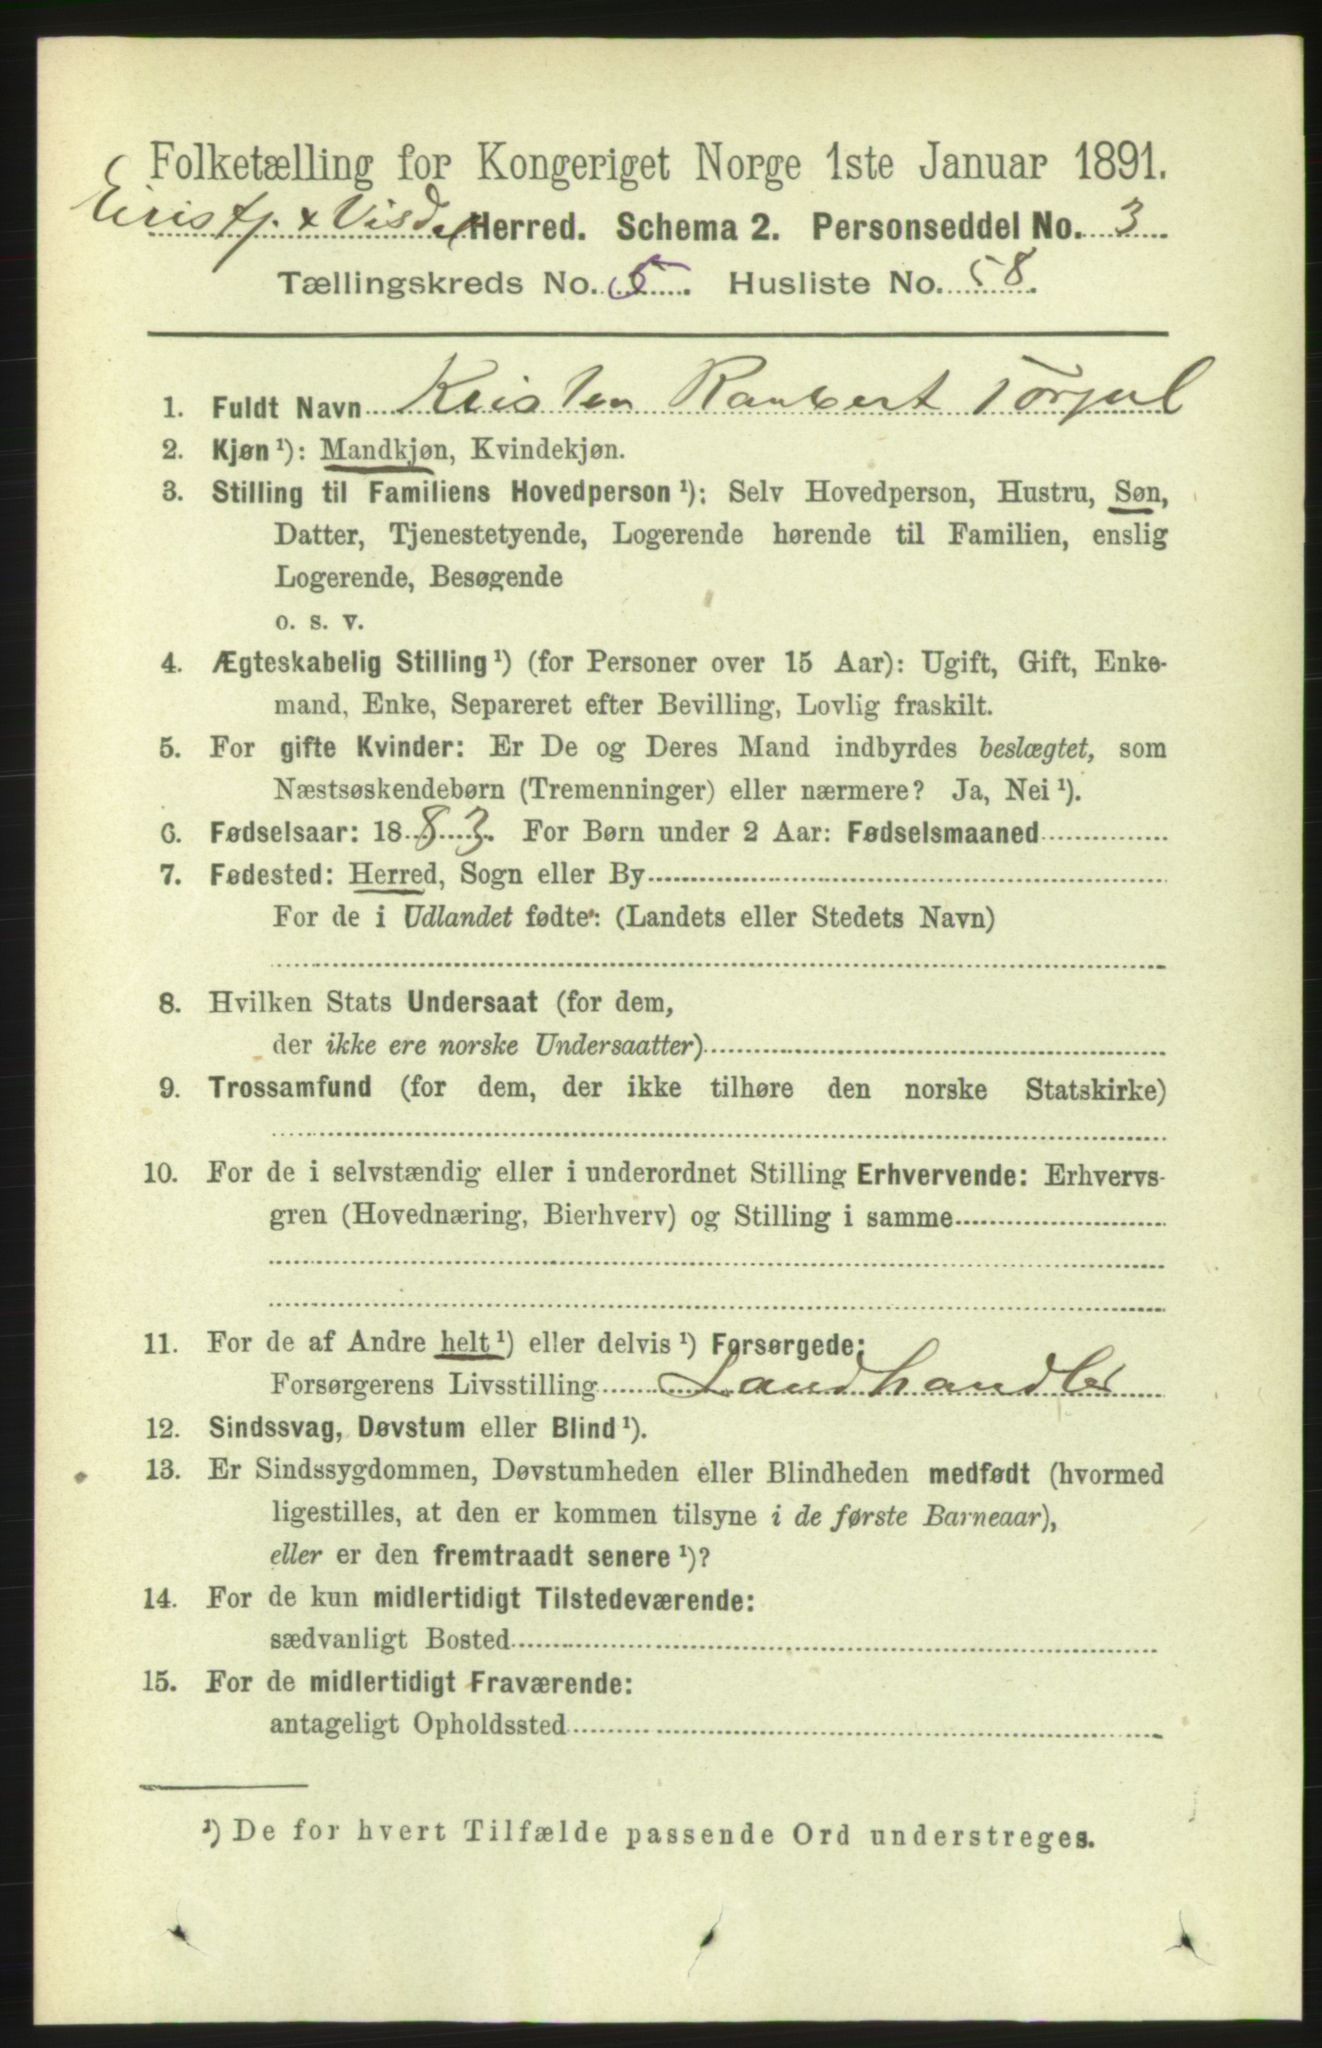 Folketælling for Kongeriget Norge 1ste Januar 1891.
Eirisfj. & Visdal Herred. Schema 2. Personseddel No. 3
Tællingskreds No. 5. Husliste No. 58.
1. Fuldt Navn Kristen Rambert Torjul
2. Kjøn ¹): Mandkjøn, Kvindekjøn.
3. Stilling til Familiens Hovedperson ¹): Selv Hovedperson, Hustru, Søn,
Datter, Tjenestetyende, Logerende hørende til Familien, enslig
Logerende, Besøgende
o. s. v.
4. Ægteskabelig Stilling ¹) (for Personer over 15 Aar): Ugift, Gift, Enke-
mand, Enke, Separeret efter Bevilling, Lovlig fraskilt.
5. For gifte Kvinder: Er De og Deres Mand indbyrdes beslægtet, som
Næstsøskendebørn (Tremenninger) eller nærmere? Ja, Nei ¹).
6. Fødselsaar: 1883. For Børn under 2 Aar: Fødselsmaaned
7. Fødested: Herred, Sogn eller By
For de i Udlandet fødte: (Landets eller Stedets Navn)
8. Hvilken Stats Undersaat (for dem,
der ikke ere norske Undersaatter)
9. Trossamfund (for dem, der ikke tilhøre den norske Statskirke)
10. For de i selvstændig eller i underordnet Stilling Erhvervende: Erhvervs-
gren (Hovednæring, Bierhverv) og Stilling i samme
11. For de af Andre helt ¹) eller delvis ¹) Forsørgede:
Forsørgerens Livsstilling Landhandler
12. Sindssvag, Døvstum eller Blind ¹).
13. Er Sindssygdommen, Døvstumheden eller Blindheden medfødt (hvormed
ligestilles, at den er kommen tilsyne i de første Barneaar),
eller er den fremtraadt senere ¹)?
14. For de kun midlertidigt Tilstedeværende:
sædvanligt Bosted
15. For de midlertidigt Fraværende:
antageligt Opholdssted
¹) De for hvert Tilfælde passende Ord understreges.